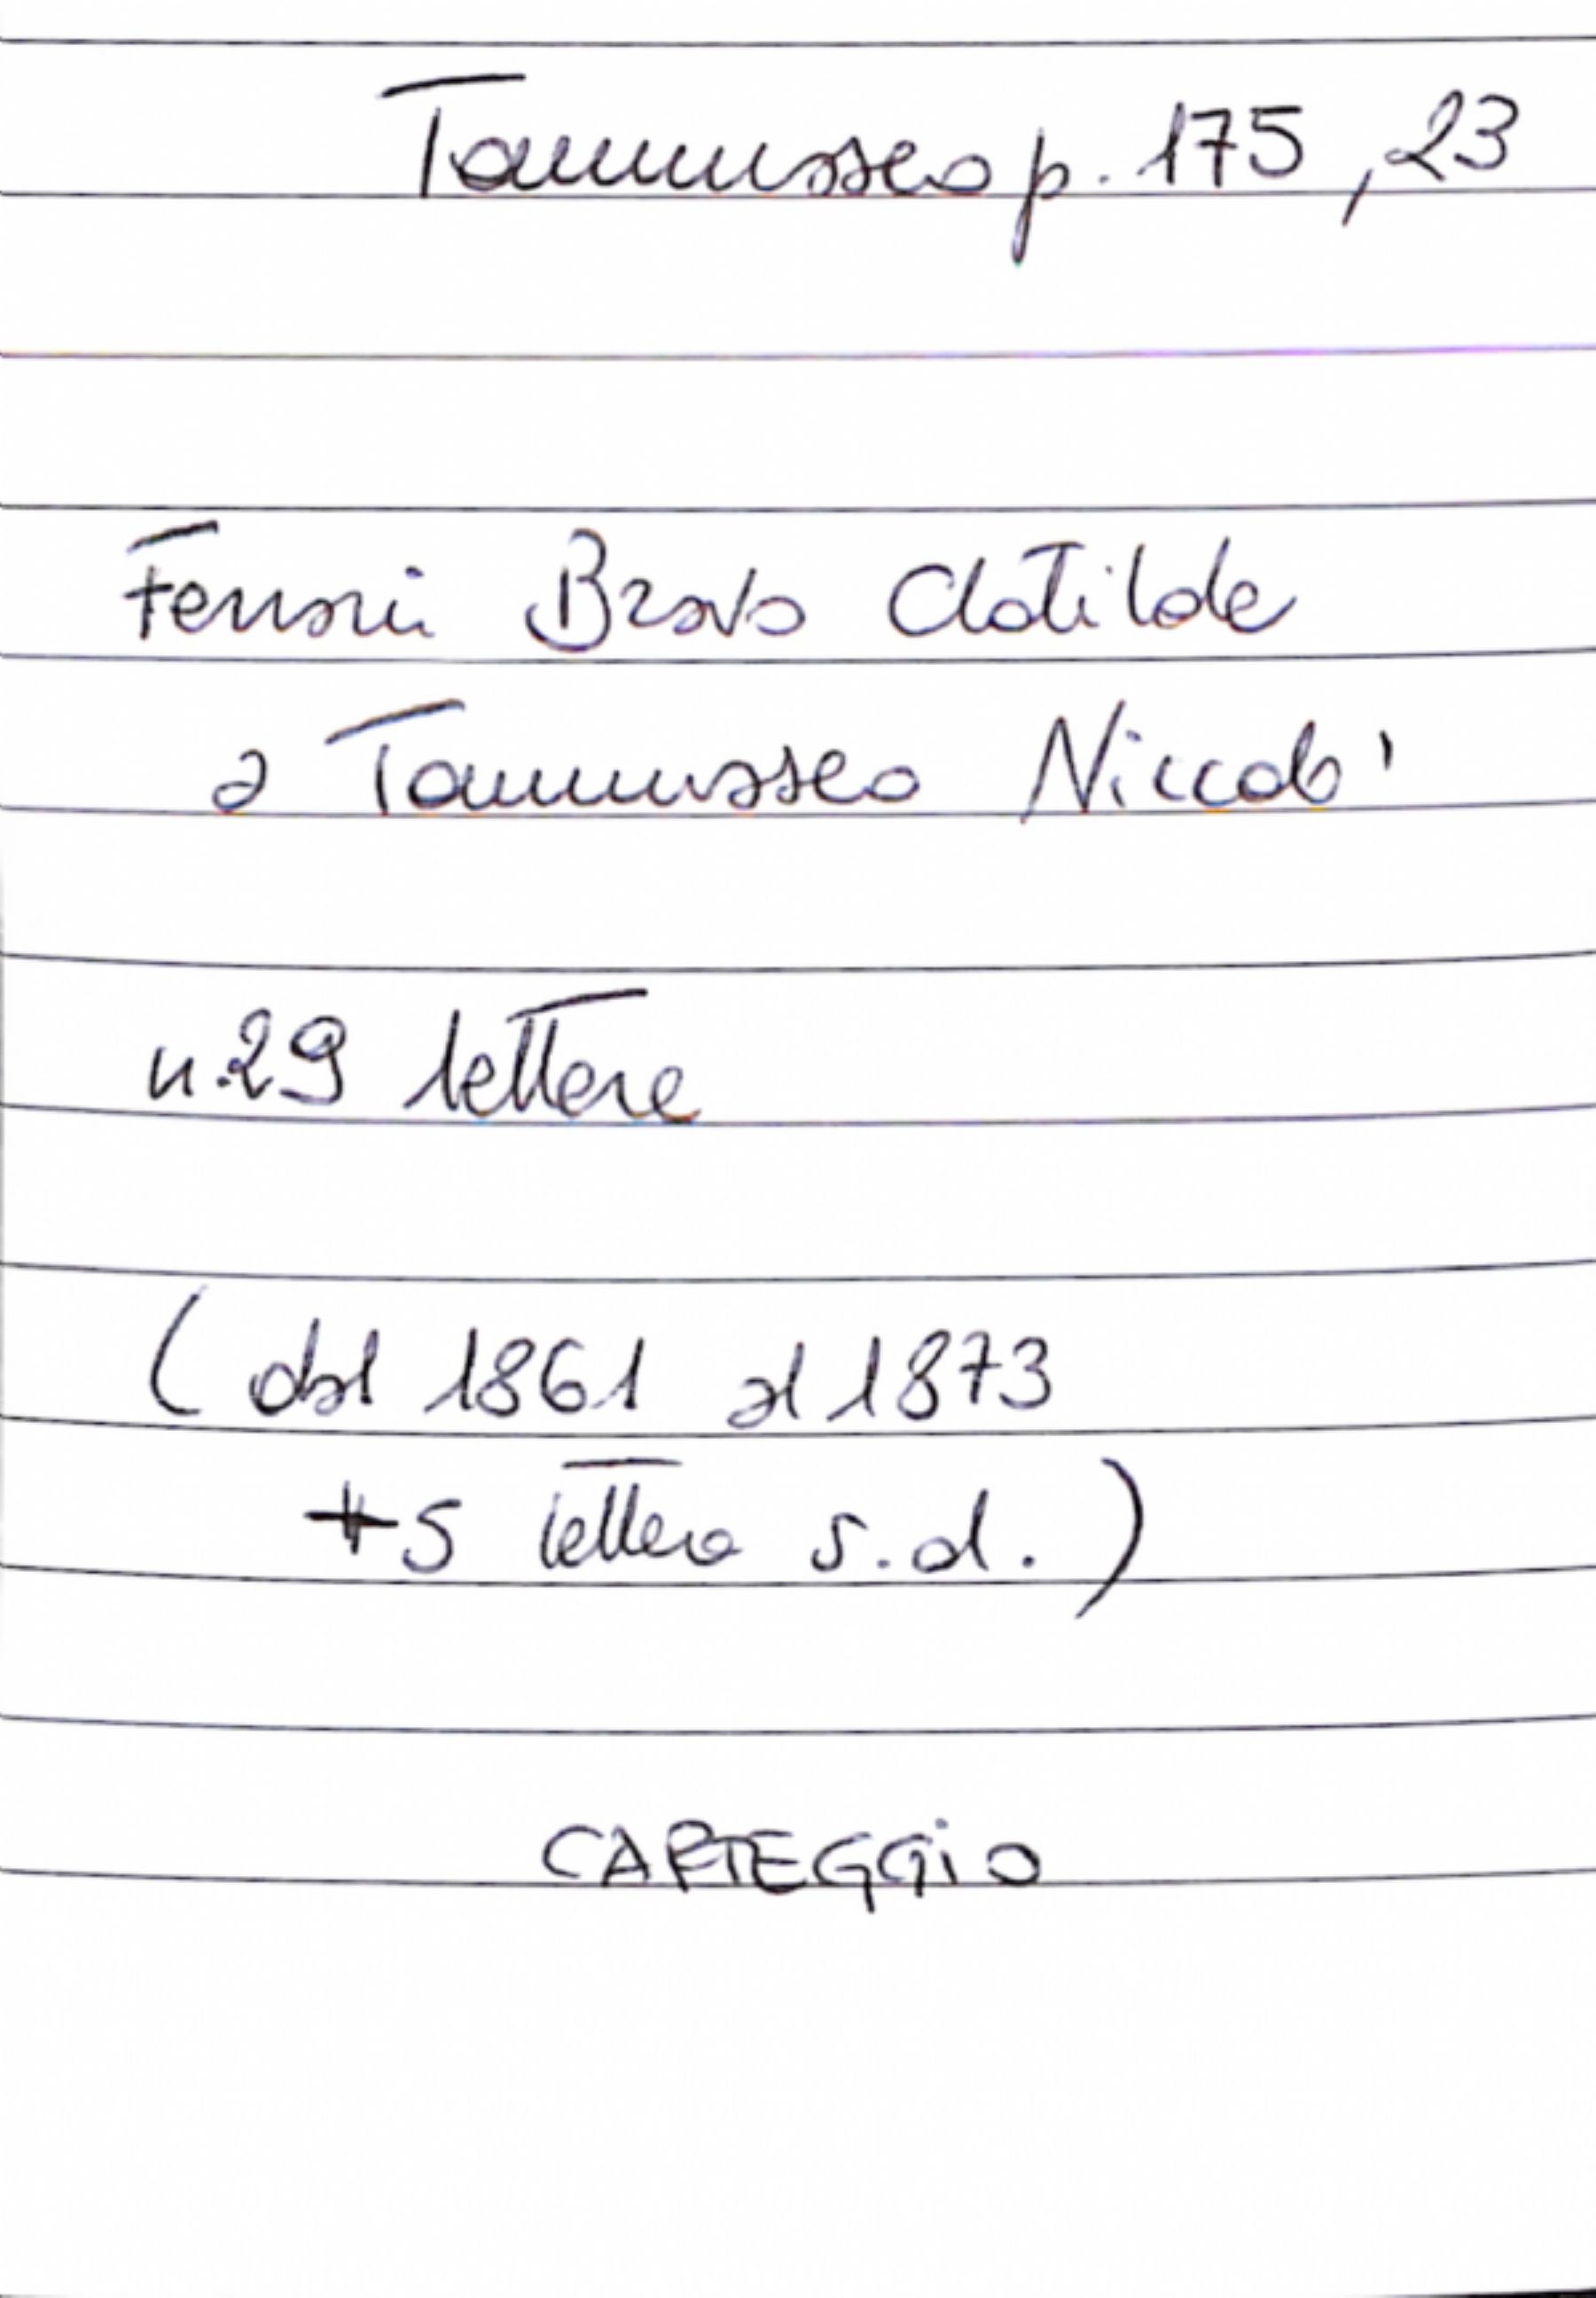 Tommaseo p. 175, 23
Ferrari Bravo Clotilde
a Tommaseo Niccolo'
n. 29 lettere
(dal 1861 al 1873
+ 5 lettere s.d.)
CARTEGGIO